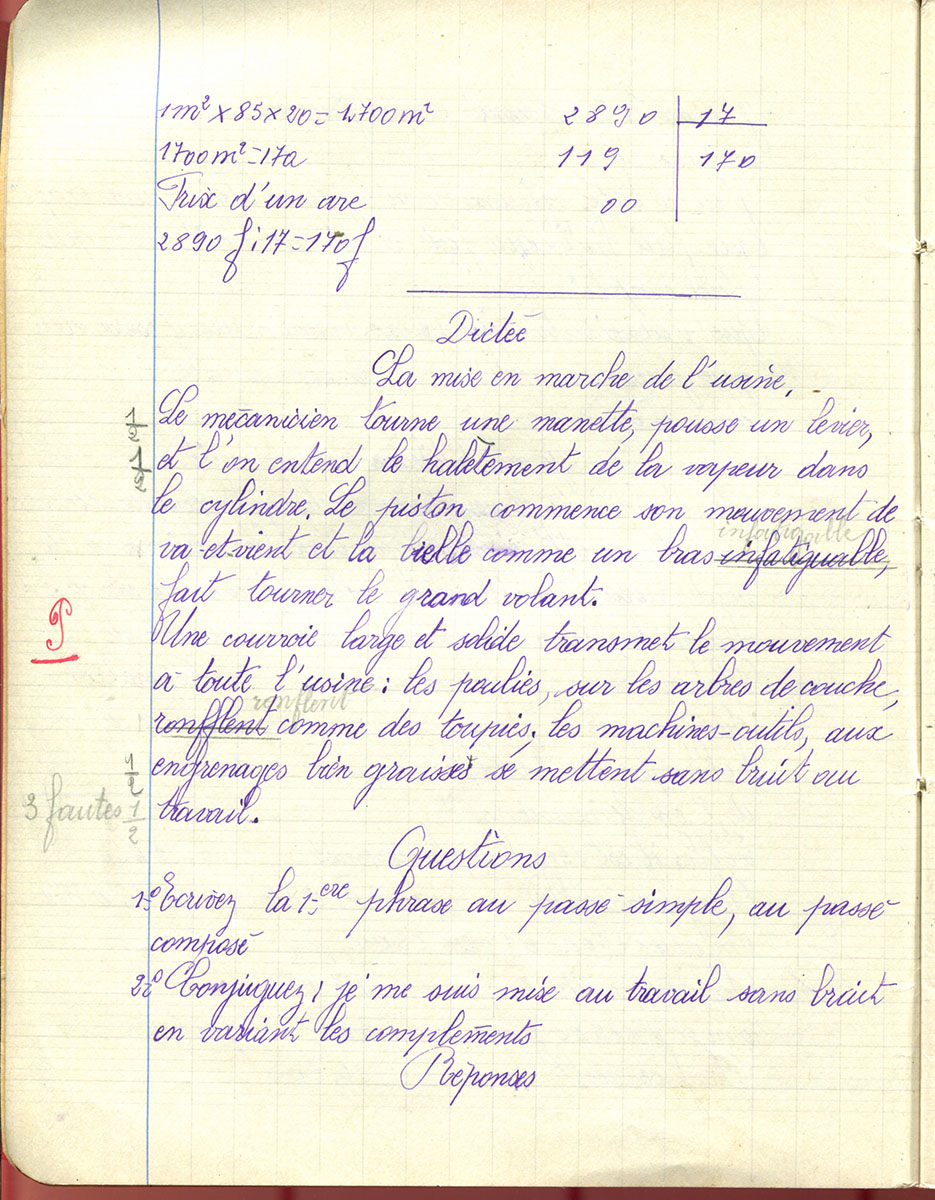 1m² × 85 × 20 = 1700m²
2890 | 17
1700m² = 17a
119 | 170
Prix d'un are
00
2890 f : 17 = 170f
Dictée
La mise en marche de l'usine.
Le mécanicien tourne une manette, pousse un levier,
et l'on entend le halètement de la vapeur dans
le cylindre. Le piston commence son mouvement de
infatigable
va-et-vient et la bielle comme un bras infatiguable,
fait tourner le grand volant.
Une courroie large et solide transmet le mouvement
à toute l'usine : les pouliés, sur les arbres de couche,
ronflent
ronfflent comme des toupies, les machines-outils, aux
engrenages bien graissés se mettent sans bruit au
travail.
9
3 fautes 1/2
Questions
1º Ecrivez la 1ère phrase au passé simple, au passé
composé
2º Conjuguez : je me suis mise au travail sans bruit
en variant les complements
Réponses